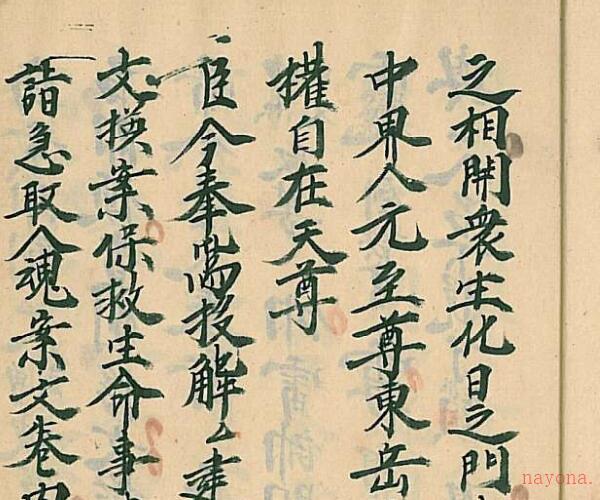 之相開衆生化日之門
中界人元至尊東岳
權自在天尊
臣今奉喘投解厶建
文揆案保救生命事
詣急取人魂案文卷内
nayona.